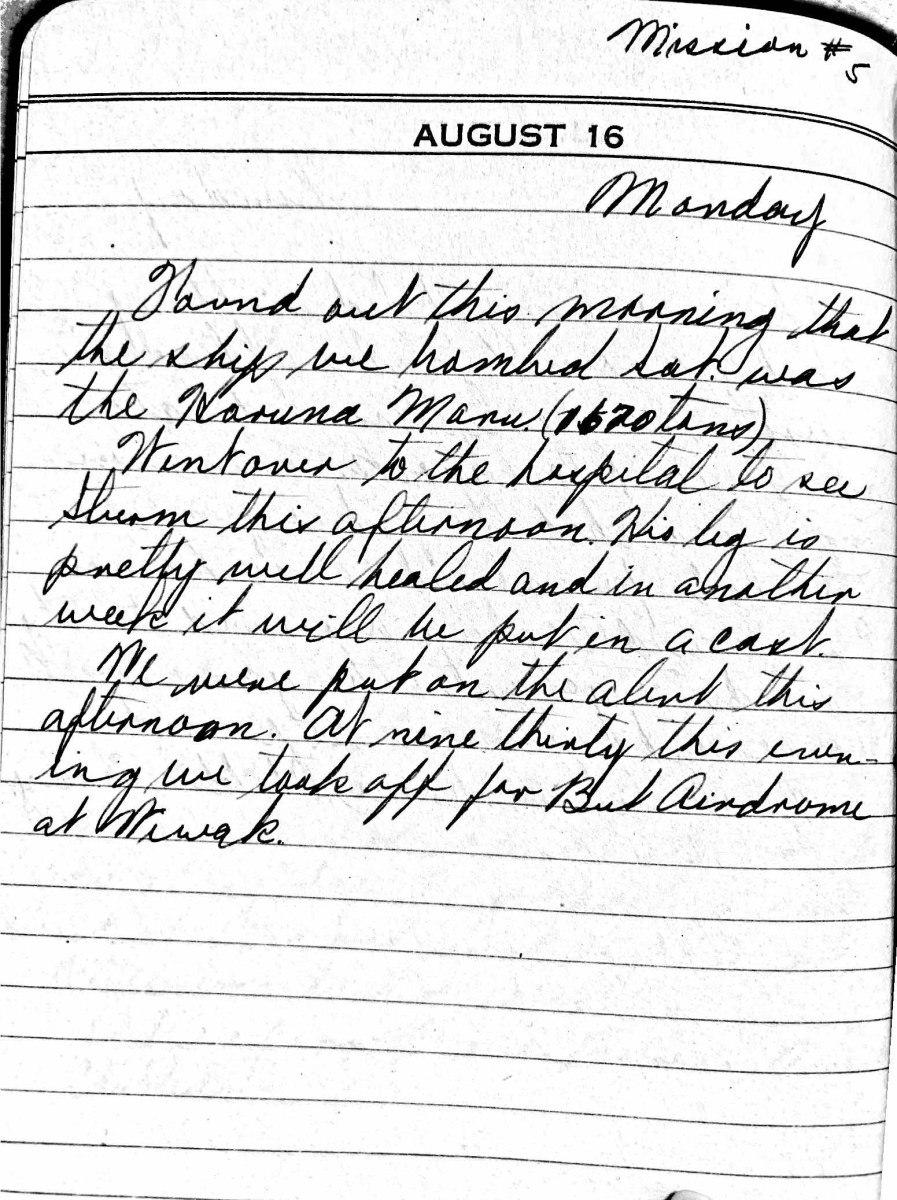 Mission #
5
AUGUST 16
Monday
Found out this morning that
the ship we bombed sat. was
the Karuna Maru. (1620 tons)
Went over to the hospital to see
Sturm this afternoon. His leg is
pretty well healed and in another
week it will be put in a cast.
We were put on the alert this
afternoon. At nine thirty this even-
ing we took off for But Airdrome
at Wewak.